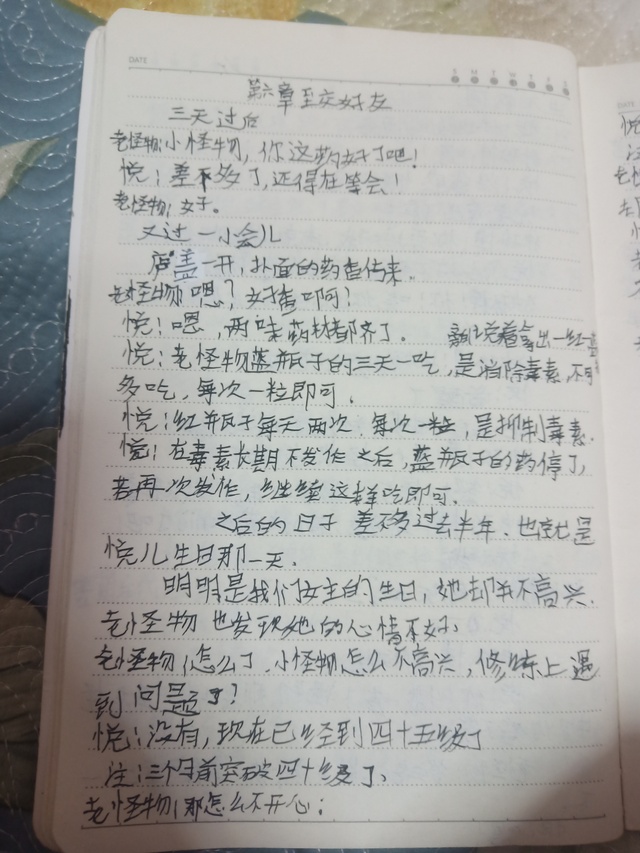 DATE
S M T W T F S
第六章至交好友
三天过后
老怪物:小怪物,你这药好了吧!
悦:差不多了,还得在等会!
老怪物:好。
又过一小会儿
盖一开,扑面的药香传来。
老怪物:嗯?好香啊啊?
悦:嗯,两味药材都齐了。 说着拿出一红一蓝
悦:老怪物蓝并瓦子的三天一吃,是消除毒素,不可
多吃,每次一粒即可.
悦:红并瓦子每天两次.每次一粒,是抑制毒素.
悦:在毒素长期不发作之后,蓝并瓦子的药停了,
若再一次发作,继续这样吃即可.
之后的日子差不多过去半年.也就是
悦儿生日那一天.
明明是我们女主的生日,她却并不高兴.
老怪物也发现她的心情不好.
老怪物:怎么了.小怪物怎么不高兴,修炼上遇
到问题了?
悦:没有,现在已经到四十五级了
注:三个月前突破四十级了、
老怪物:那怎么不开心;
DATE